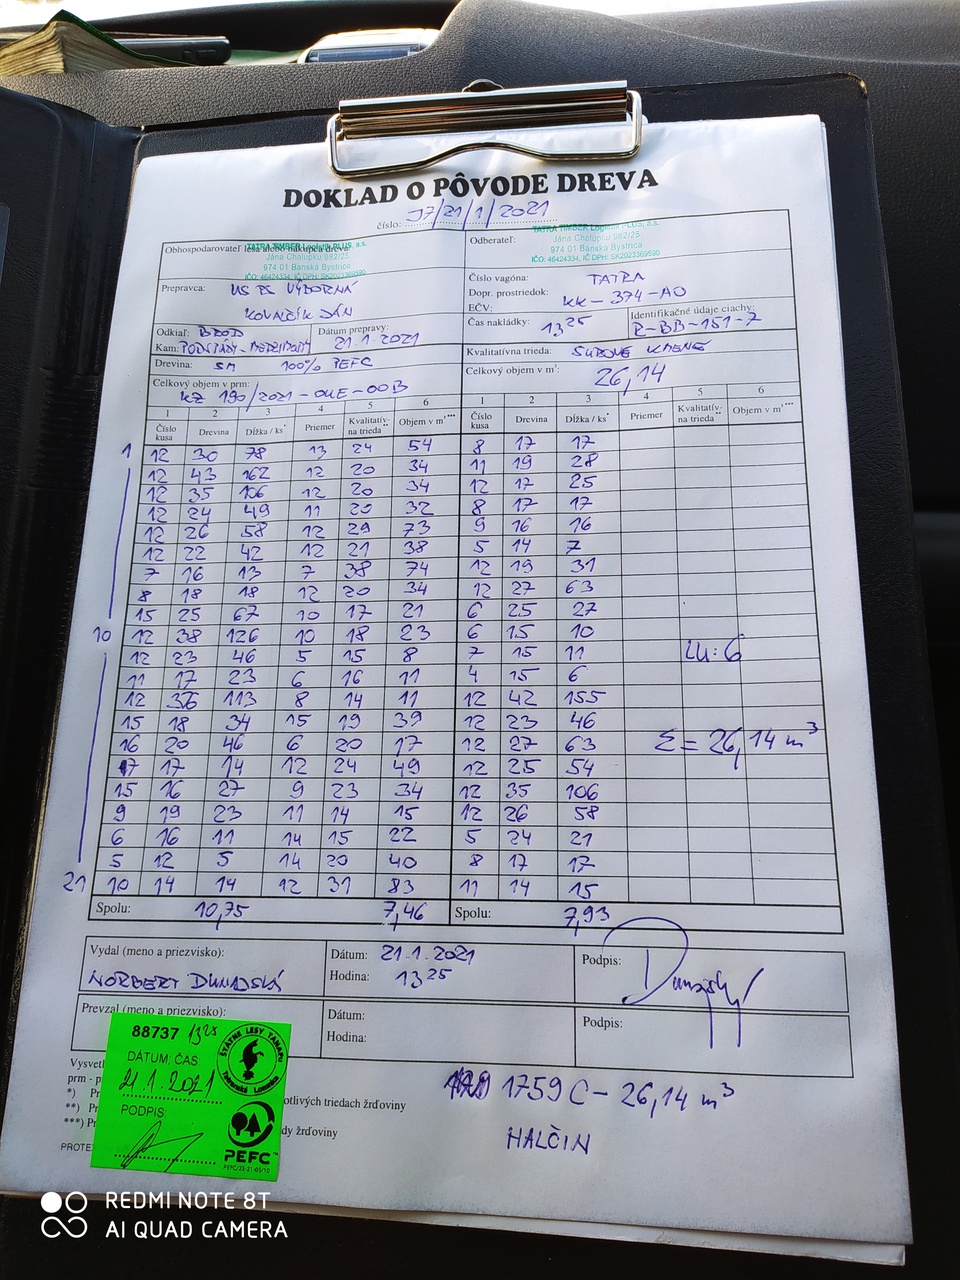 DOKLAD O PÔVODE DREVA
číslo: J7/21/1/2021
Obhospodarovateľ lesa alebo nákupca dreva:
TATRA TIMBER Logistik PLUS, a.s.
Jána Chalupku 982/25
974 01 Banská Bystrica
IČO: 46424334, IČ DPH: SK2023369590
Odberateľ:
TATRA TIMBER Logistik PLUS, a.s.
Jána Chalupku 982/25
974 01 Banská Bystrica
IČO: 46424334, IČ DPH: SK2023369590
Prepravca: US PS VÝBORNÁ
KOVALČÍK JÁN
Číslo vagóna: TATRA
Dopr. prostriedok:
EČV: KK-374-AO
Odkiaľ: BROD
Kam: PODSPÁDY-
Dátum prepravy:
21.1.2021
Čas nakládky: 13 25
Identifikačné údaje ciachy:
R-BB-151-7
Drevina: SM 100% PEFC
Kvalitatívna trieda: SUROVÉ KMENE
Celkový objem v prm:
KZ 190/2021-OKE-00B
Celkový objem v m³: 26,14
1 2 3 4 5 6 1 2 3 4 5 6
Číslo kusa Drevina Dĺžka / ks* Priemer Kvalitatív- na trieda** Objem v m³*** Číslo kusa Drevina Dĺžka / ks* Priemer Kvalitatív- na trieda** Objem v m³***
1 12 30 78 13 24 54 8 17 17
12 43 162 12 20 34 11 19 28
12 35 106 12 20 34 12 17 25
12 24 49 11 20 32 8 17 17
12 26 58 12 29 73 9 16 16
12 22 42 12 21 38 5 14 7
7 16 13 7 38 74 12 19 31
8 18 18 12 20 34 12 27 63
15 25 67 10 17 21 6 25 27
10 12 38 126 10 18 23 6 15 10
12 23 46 5 15 8 7 15 11 LU: 6
11 17 23 6 16 11 4 15 6
12 36 113 8 14 11 12 42 155
15 18 34 15 19 39 12 23 46
16 20 46 6 20 17 12 27 63 Σ = 26,14 m³
7 17 14 12 24 49 12 25 54
15 16 27 9 23 34 12 35 106
9 19 23 11 14 15 12 26 58
6 16 11 14 15 22 5 24 21
5 12 5 14 20 40 8 17 17
21 10 14 14 12 31 83 11 14 15
Spolu: 10,75 7,46 Spolu: 7,93
Vydal (meno a priezvisko):
NORBERT DUNAJSKÝ
Dátum: 21.1.2021
Hodina: 13 25
Podpis: Dunajský
Prevzal (meno a priezvisko):
Dátum:
Hodina:
Podpis:
88737 13 25
DÁTUM, ČAS
21.1.2021
PODPIS:
ŠTÁTNE LESY TANAPU
Tatranská Lomnica
PEFC™
PEFC/25-21-03/10
Vysvet
prm - p
*) Pr
otlivých triedach žrďoviny
**) Pr
***) Pr
dy žrďoviny
PROTE
1759 C - 26,14 m³
HALČIN
REDMI NOTE 8T
AI QUAD CAMERA